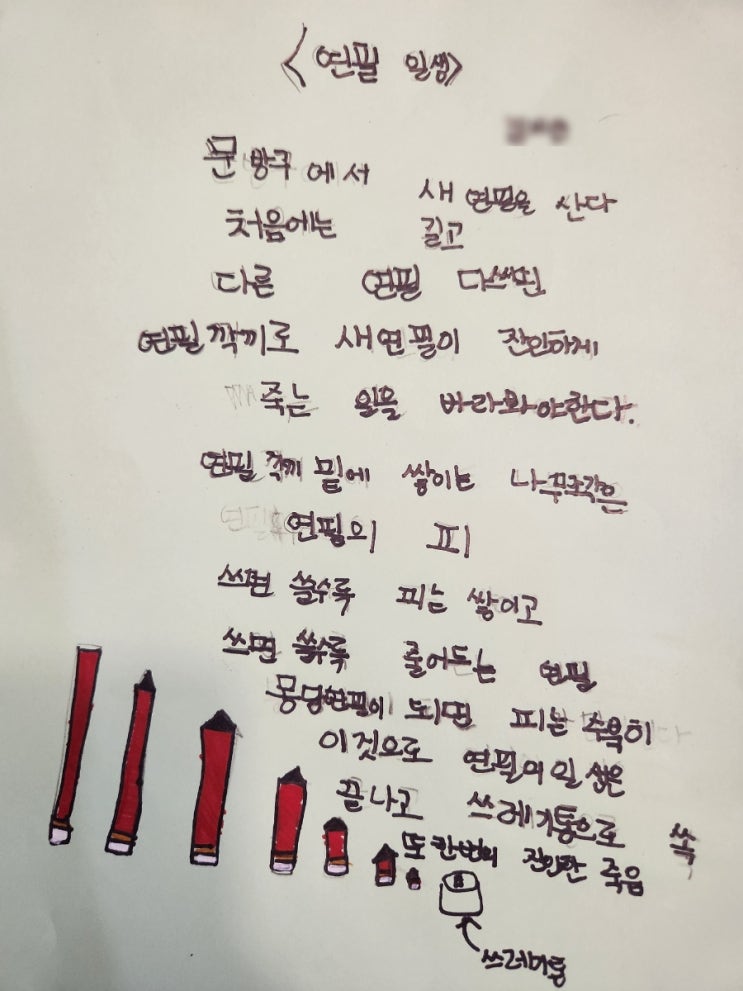 <연필 일생>
문방구에서 새 연필을 산다
처음에는 길고
다른 연필 다쓰면
연필깍끼로 새연필이 잔인하게
죽는 일을 바라봐야한다.
연필 깍끼 밑에 쌓이는 나무조각은
연필의 피
쓰면 쓸수록 피는 쌓이고
쓰면 쓸수록 줄어드는 연필
몽당연필이 되면 피는 수욱히
이것으로 연필의 일 삶은
끝나고 쓰레기통으로 쏙
또 한번의 잔인한 죽음
쓰레기통